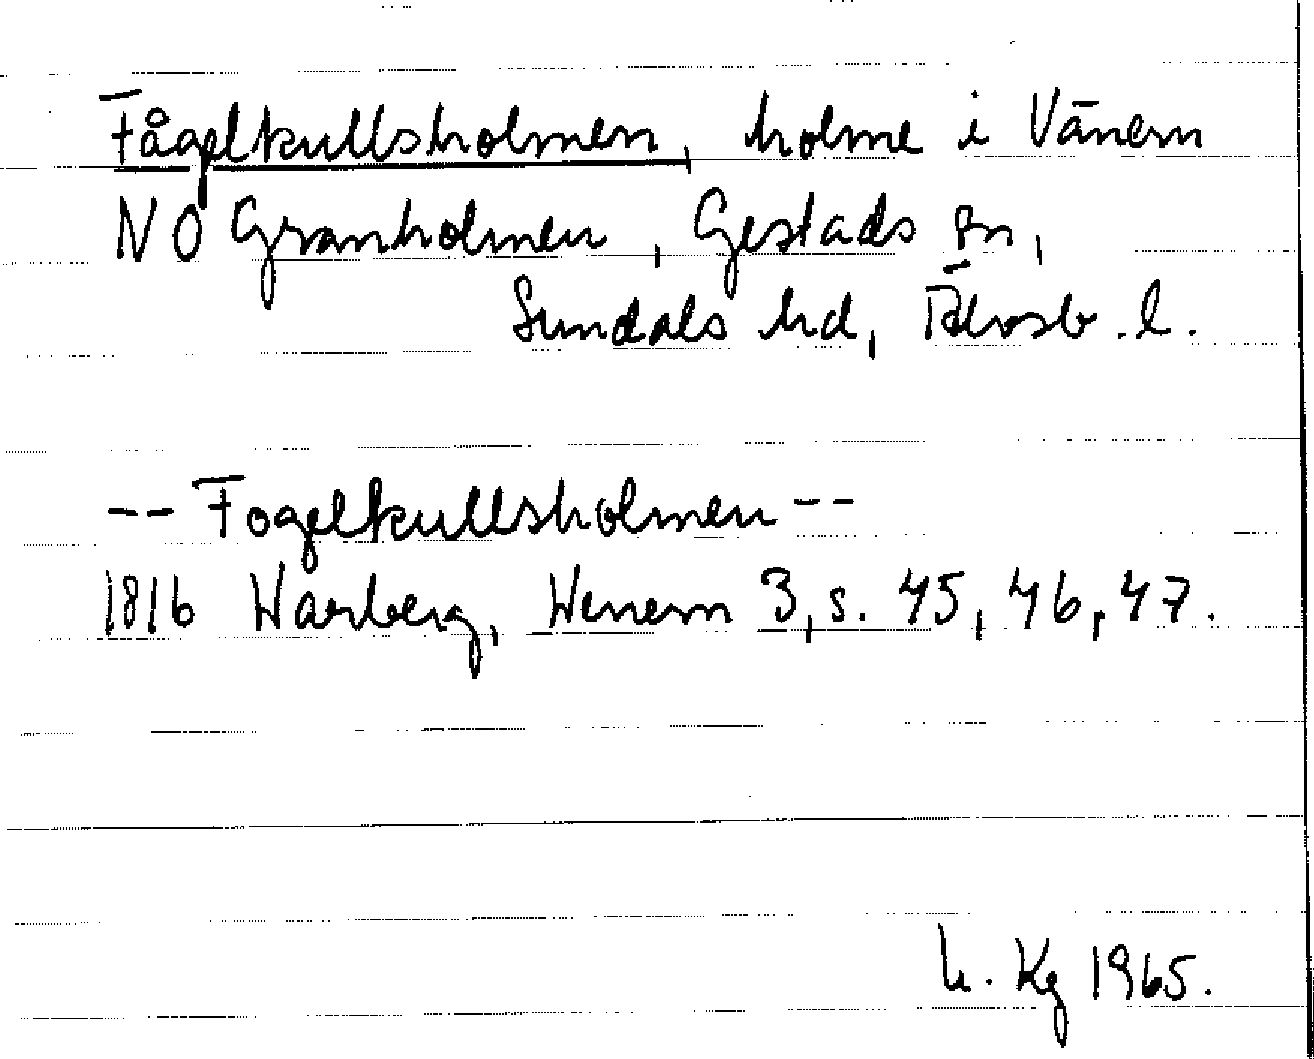 Fågelkullsholmen, holme i Vänern
NO Granholmen, Gestads sn,
Sundals hd, Älvsb. l.
-- Fogelkullsholmen --
1816 Warberg, Wenern 3, s. 45, 46, 47.
h. Kg 1965.